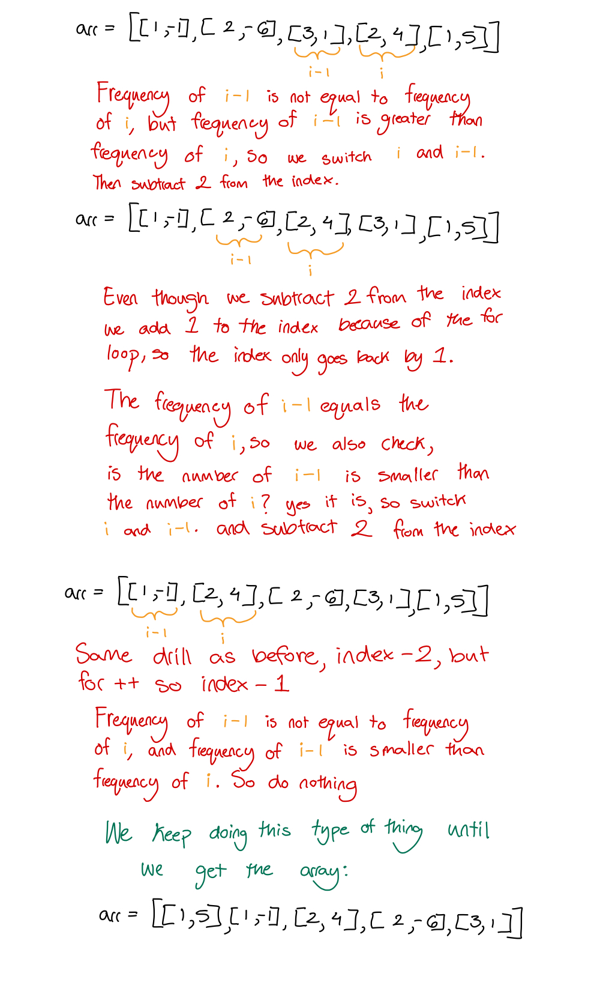 arr = [[1,-1],[2,-6],[3,1],[2,4],[1,5]]
i-1 i
Frequency of i-1 is not equal to frequency
of i, but frequency of i-1 is greater than
frequency of i, so we switch i and i-1.
Then subtract 2 from the index.
arr = [[1,-1],[2,-6],[2,4],[3,1],[1,5]]
i-1 i
Even though we subtract 2 from the index
we add 1 to the index because of the for
loop, so the index only goes back by 1.
The frequency of i-1 equals the
frequency of i, so we also check,
is the number of i-1 is smaller than
the number of i? yes it is, so switch
i and i-1. and subtract 2 from the index
arr = [[1,-1],[2,4],[2,-6],[3,1],[1,5]]
i-1 i
Same drill as before, index -2, but
for ++ so index -1
Frequency of i-1 is not equal to frequency
of i, and frequency of i-1 is smaller than
frequency of i. So do nothing
We keep doing this type of thing until
we get the array:
arr = [[1,5],[1,-1],[2,4],[2,-6],[3,1]]